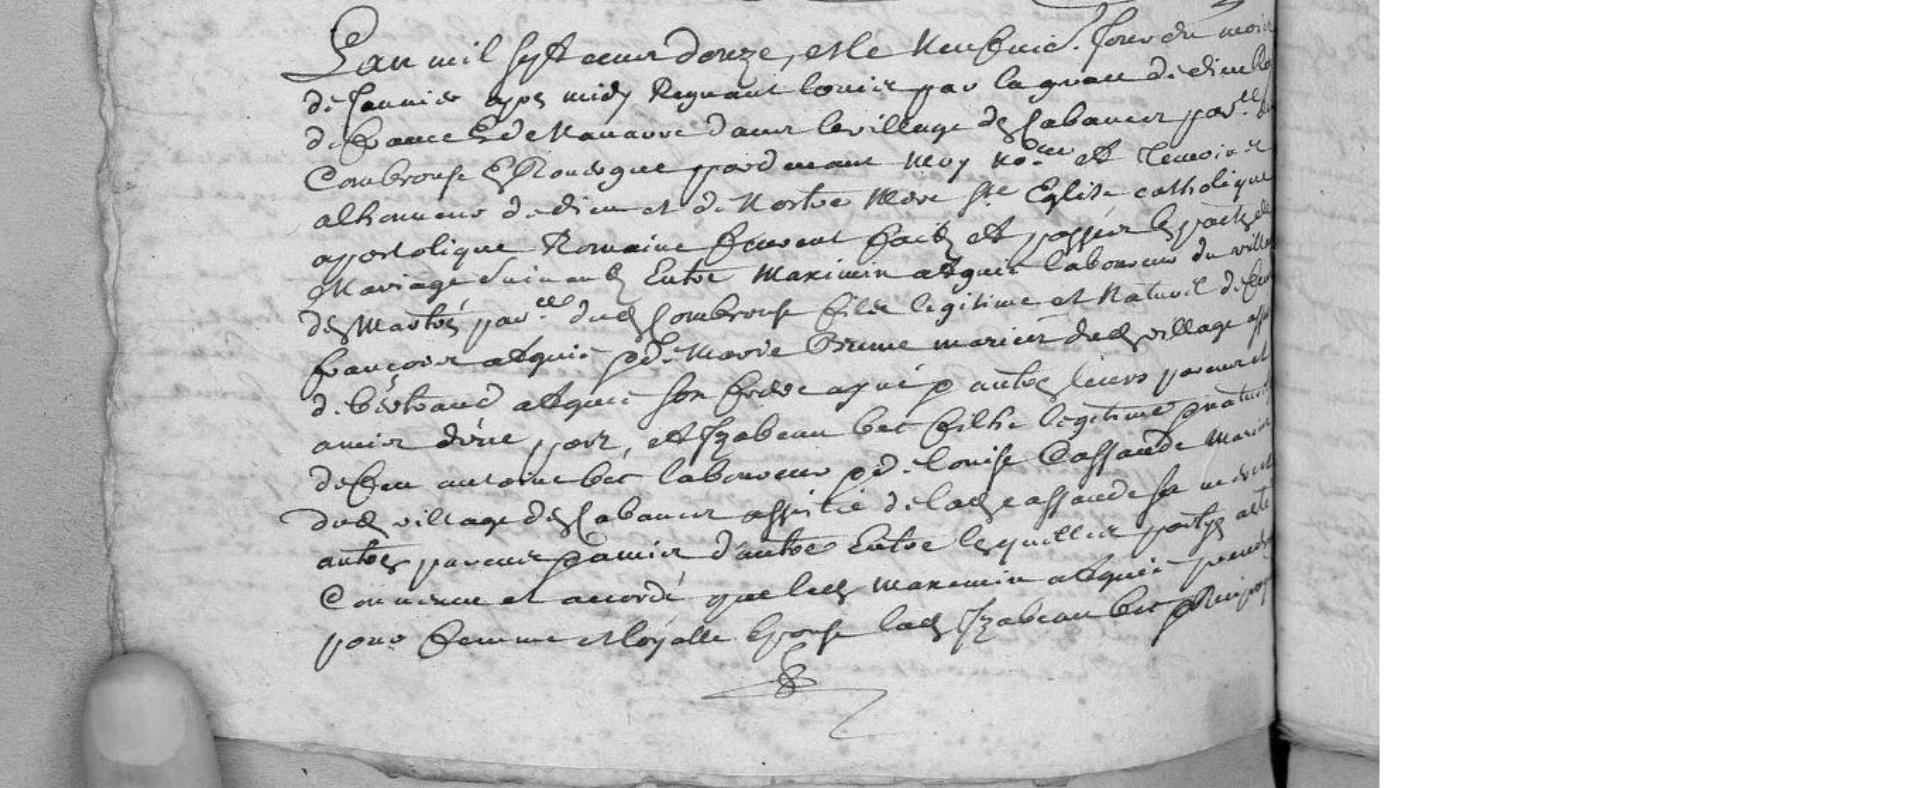 Lan mil sept cens douze, et le neufvie. Jour du mois
de Janvier apres midy Regnant louis par la grace de dieu Roy
de france Et de Navarre dans le village de Cabanes parlle de
Combrouse En Rouergue pardevant moy nore et temoins
alhonneur de dieu et de Nostre Mere Ste Eglise catholique
apostolique Romaine feurent faitz et passés les pactes de
Mariage suivantz Entre Maximin alquié laboureur du villa
de Martres parlle dud Combrouse filie legitime et Naturel de feu
françois alquié et de Marie Brune mariés dud village
de bertrand alquié son frere ayné et autres leurs parens et
amis d'une part, et Izabeau bec filhe legitime et naturel
de feu antoine bec laboureur et de louise Cassande Maries
dud village de Cabanes assistée de lad cassande sa mere et
autres parens et amis d'autre Entre lesquelles partyes a esté
Convenu et accordé que led Maxemin alquié prendr
pour femme et loyalle Epouse lad Izabeau bec